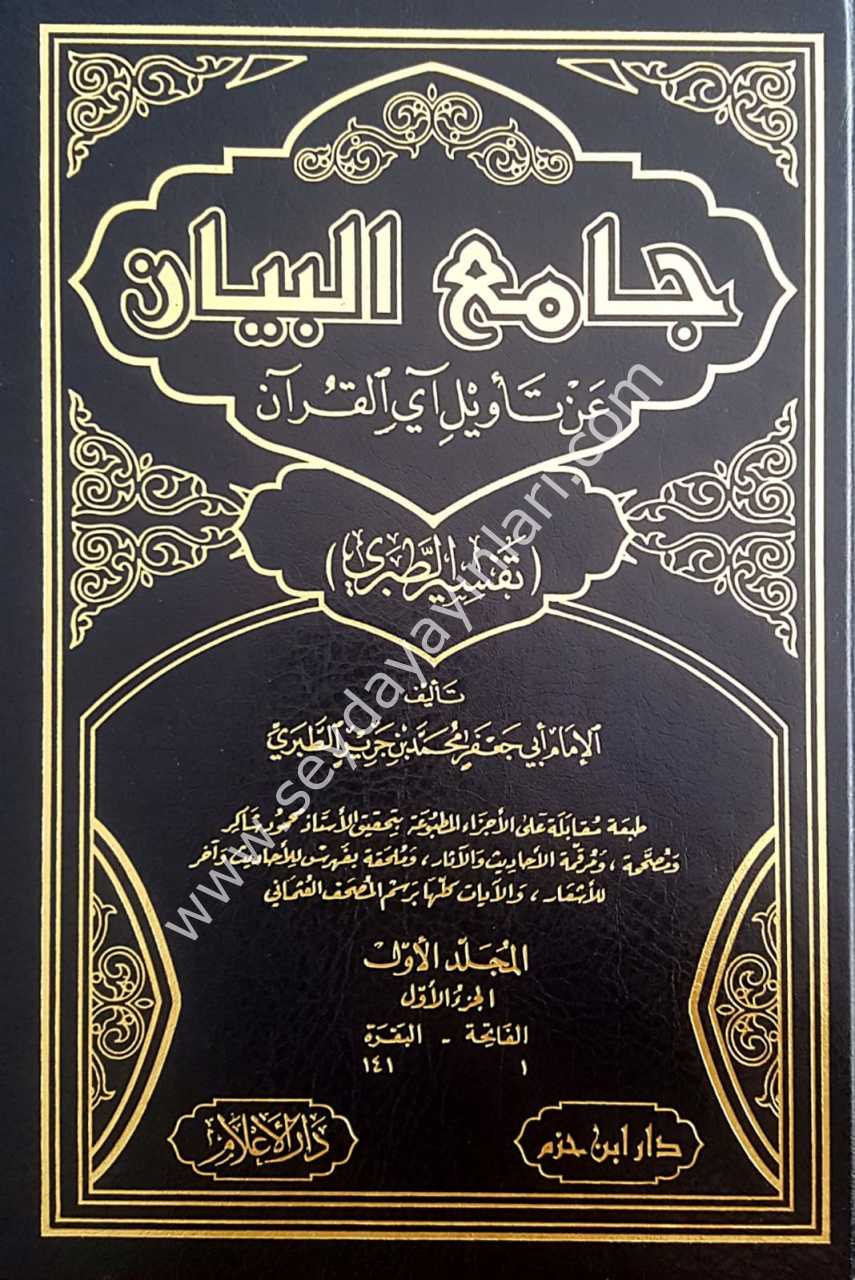 جامع البيان
عَنْ تَأويْلِ آيِ القُرآن
(تَفْسِير الطَّبَري)
تَأليفْ
الإمَام أبي جَعفَر مُحمَّد بْن جَرِيْر الطَّبَريْ
طبعة مُقابَلة على الأجزاء المطبوعة بتحقيق الأستاذ محمود شاكر
ومُصَحَّحة ، ومُرقمة الأحاديث والآثار ، ومُلحَقة بفهرس للأحاديث وآخر
للأشعار ، والآيات كلّها برسم المُصحَف العُثماني
المُجَلّد الأوّل
الجزء الأوّل
الفاتحة - البقرة
١ ١٤١
دار ابن حزم
دار الأعلام
www.seydayayinlari.com